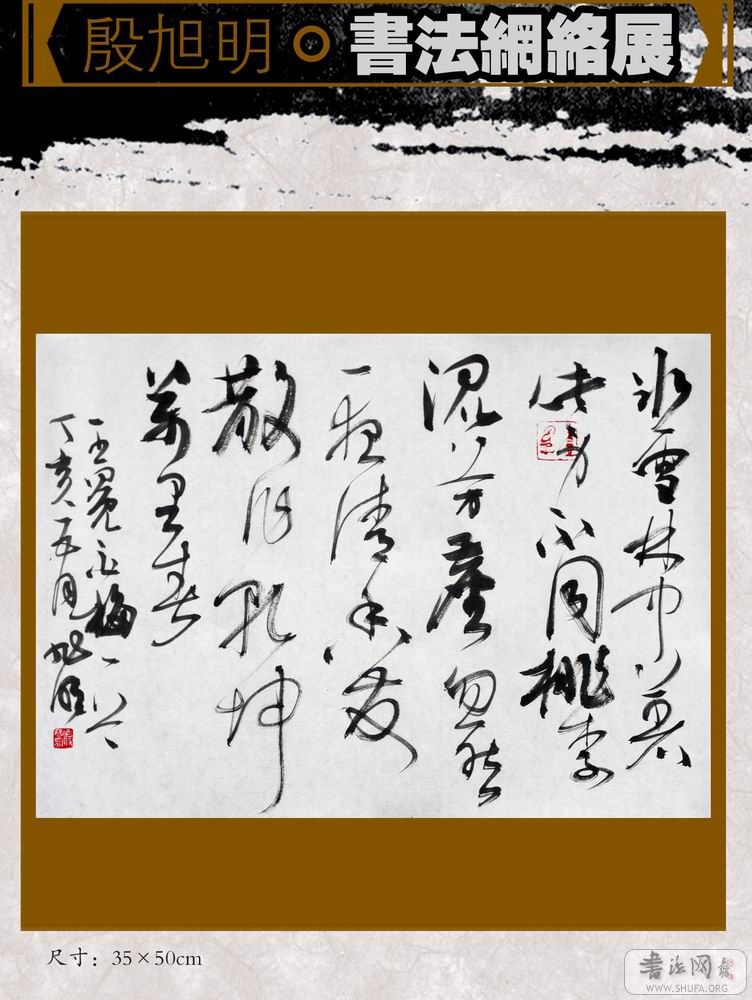 殷旭明
書法網絡展
冰雪林中著
此身不同桃李
混芳塵忽然
一夜清香發
散作乾坤
萬里春
王冕白梅一首
丁亥五月旭明
尺寸：35×50cm
書法网
WWW.SHUFA.ORG